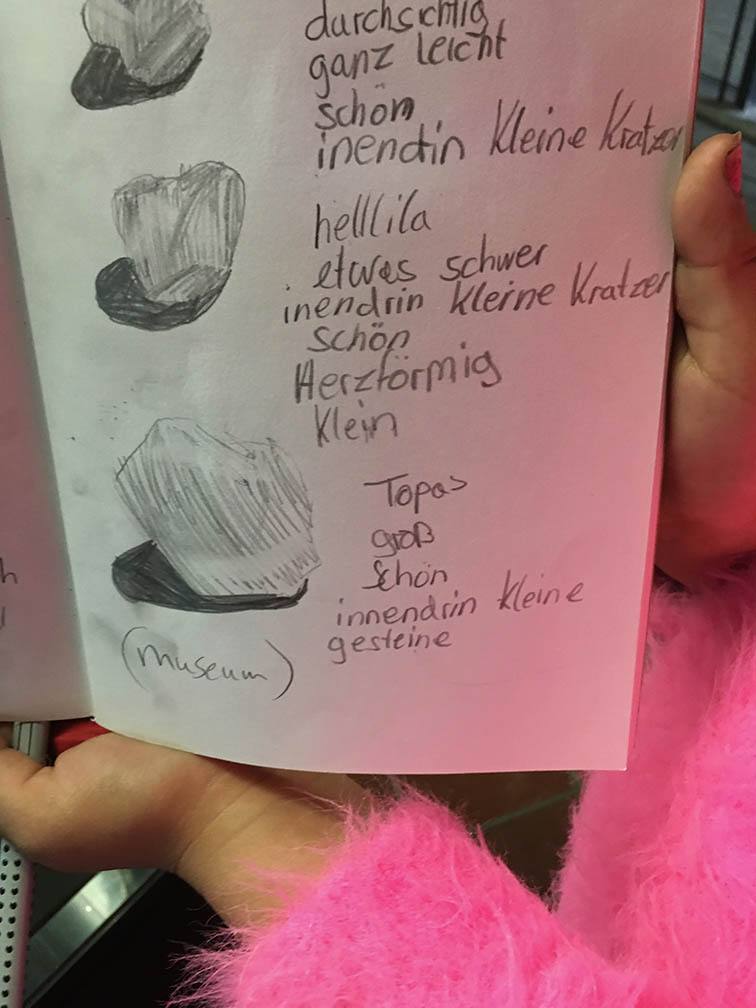 durchsichtig
ganz leicht
schön
inendrin kleine Kratzer
helllila
etwas schwer
inendrin kleine Kratzer
schön
Herzförmig
klein
Topas
groß
schön
innendrin kleine
gesteine
(museum)